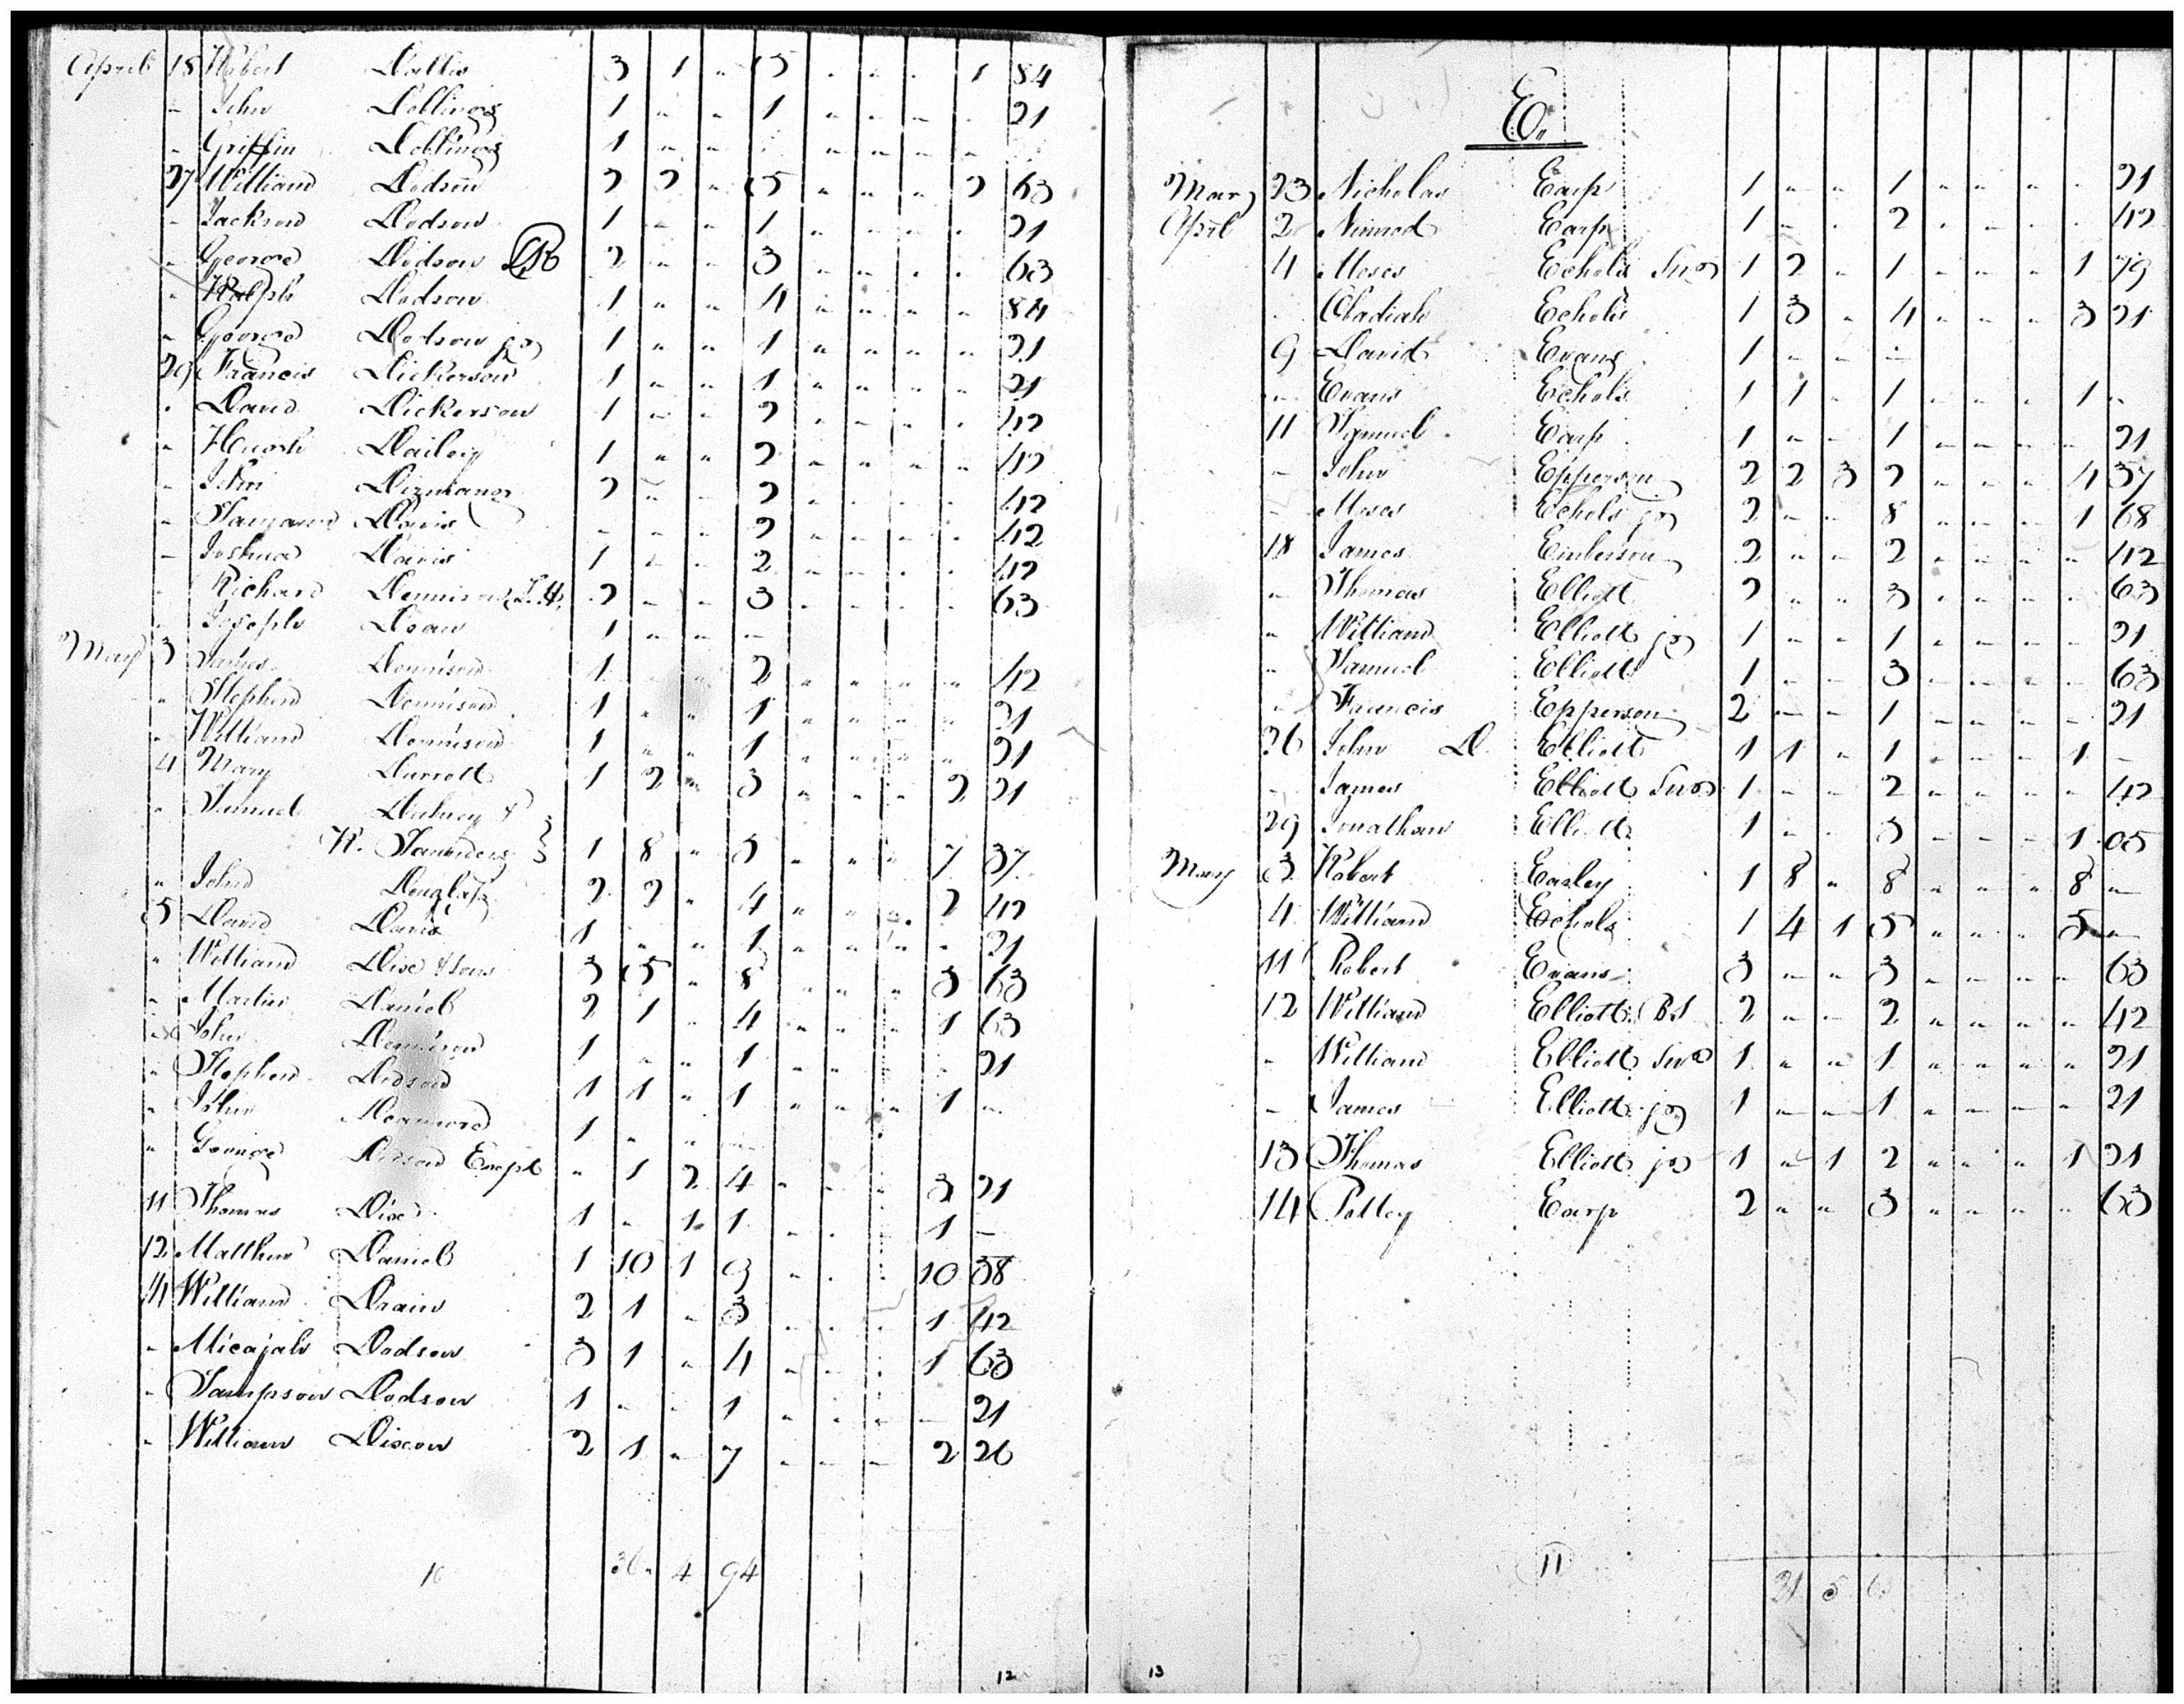 April 18 Robert Dallis 3 1 " 5 " " " 1 84
" John Collings 1 " " 1 " " " " 21
" Griffin Collings 1 " " " " " " "
27 William Dodson 2 2 " 5 " " " 2 63
" Jackson Dodson 1 " " 1 " " " " 21
" George Dodson 2 " " 3 " " " " 63
" Ralph Dodson 1 " " 4 " " " " 84
" George Dodson jr 1 " " 1 " " " " 21
29 Francis Dickerson 1 " " 1 " " " " 21
" David Dickerson 1 " " 2 " " " " 42
" Hugh Dailey 1 " " 2 " " " " 42
" John 2 " " 2 " " " " 42
" Davis " " " 2 " " " " 42
" Joshua Davis 1 " " 2 " " " " 42
" Richard Dennison 2 " " 3 " " " " 63
" Joseph Dean 1 " " "
May 3 James Dennison 1 2 " " " " 42
" Stephen Dennison 1 " " 1 " " " " 21
" William Dennison 1 " " 1 " " " " 21
4 Mary Durrett 1 2 " 3 " " " 2 21
" Samuel Dabney &
W. Saunders } 1 8 " 5 " " " 7 37
" John Douglass 2 2 " 4 " " " 2 42
5 David Davis 1 " " 1 " " " " 21
" William Dixe & Sons 3 5 " 8 " " " 5 63
" Martin Daniel 2 1 " 4 " " " 1 63
" John Dennison 1 " " 1 " " " 21
" Stephen Dodson 1 1 " 1 " " " 1 "
" John 1 " " "
" George Dodson Exempt " 1 2 4 " " " 3 21
11 Thomas Dixe 1 " 1 1 " " " 1 "
12 Matthew Daniel 1 10 1 9 " " " 10 58
14 William Drain 2 1 " 3 " " " 1 42
" Micajah Dodson 3 1 " 4 " " " 1 63
" Sampson Dodson 1 " " 1 " " " " 21
" William Dixon 2 1 " 7 " " " 2 26
10 36 4 94
12
E.
Mar 23 Nicholas Earp 1 " " 1 " " " " 21
April 2 Nimrod Earp 1 " " 2 " " " " 42
4 Moses Echols Snr 1 2 " 1 " " " 1 79
" Obadiah Echols 1 3 " 4 " " " 3 21
9 David Evans 1 " " "
" Evans Echols 1 1 " 1 " " " 1 "
11 Samuel Earp 1 " " 1 " " " " 21
" John Epperson 2 2 3 2 " " " 4 37
" Moses Echols jr 2 " " 8 " " " 1 68
18 James Emberson 2 " " 2 " " " " 42
" Thomas Elliott 2 " " 3 " " " " 63
" William Elliott jr 1 " " 1 " " " " 21
" Samuel Elliott 1 " " 3 " " " " 63
" Francis Epperson 2 " " 1 " " " " 21
26 John D. Elliott 1 1 " 1 " " " 1 "
" James Elliott Snr 1 " " 2 " " " " 42
29 Jonathan Elliott 1 " " 5 " " " 1 05
May 3 Robert Easley 1 8 " 8 " " " 8 "
4 William Echols 1 4 1 5 " " " 5 "
11 Robert Evans 3 " " 3 " " " " 63
12 William Elliott BS 2 " " 2 " " " " 42
" William Elliott Snr 1 " " 1 " " " " 21
" James Elliott jr 1 " " 1 " " " " 21
13 Thomas Elliott jr 1 " 1 2 " " " 1 21
14 Polley Earp 2 " " 3 " " " " 63
11
21 5
13